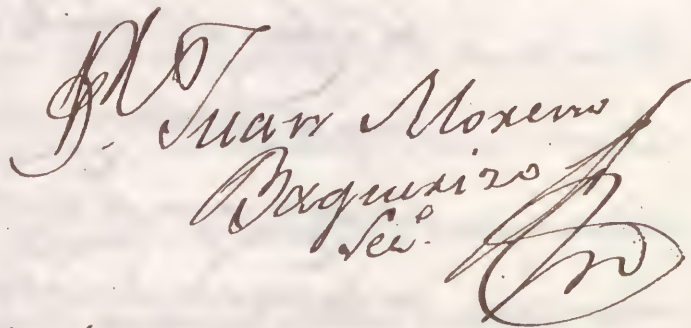 D. Juan Moreno
Baquerizo
Secº.